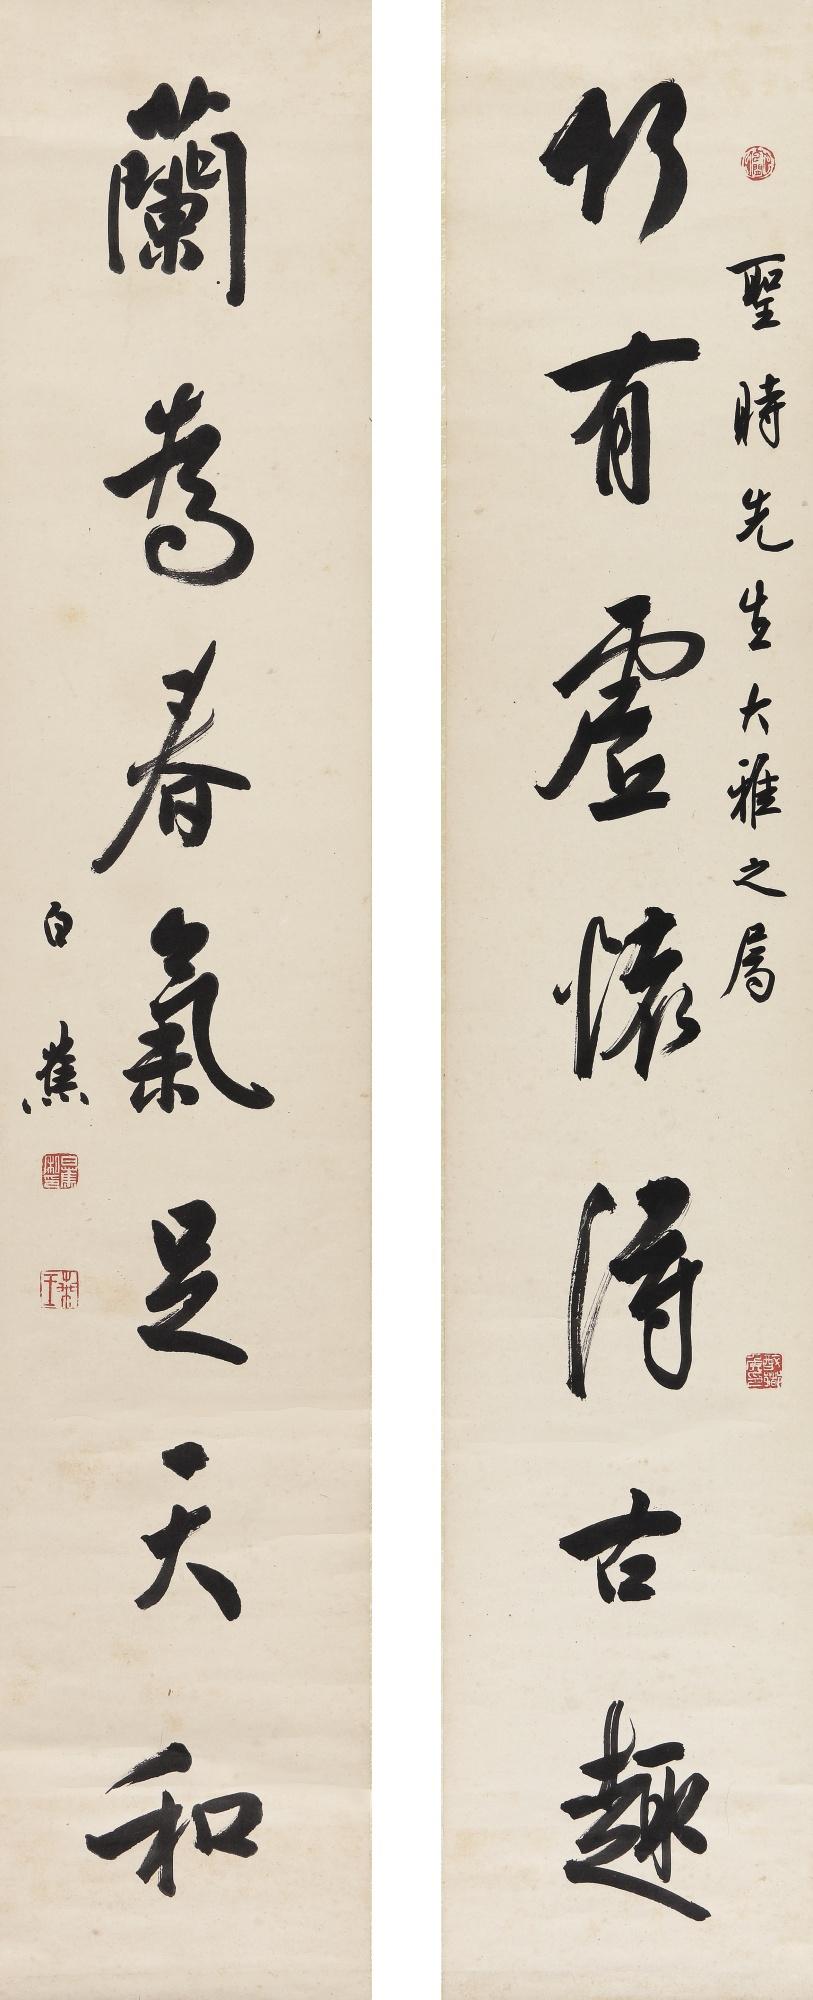 聖時先生大雅之属
竹有虛懷得古趣
蘭為春氣足天和
白蕉